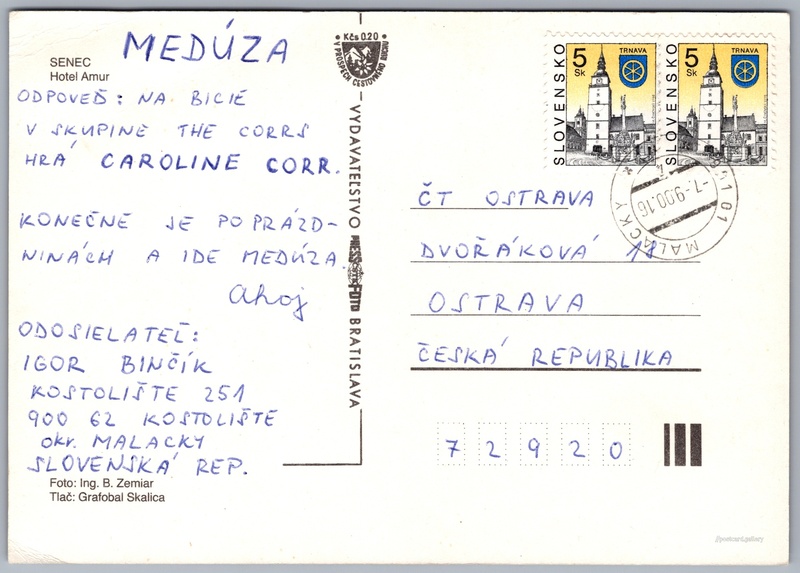 SENEC
Hotel Amur
MEDÚZA
ODPOVEĎ: NA BICIÉ
V SKUPINE THE CORRS
HRÁ CAROLINE CORR.
KONEČNE SE PO PRÁZD-
NINÁCH A IDE MEDÚZA.
Ahoj
ODOSIELATEĽ:
IGOR BINČÍK
KOSTOLIŠTE 251
900 62 KOSTOLIŠTE
okr. MALACKY
SLOVENSKÁ REP.
Foto: Ing. B. Zemiar
Tlač: Grafobal Skalica
Kčs 0.20
V PROSPECH CESTOVNÉHO RUCHU
VYDAVATEĽSTVO
PRESSFOTO
BRATISLAVA
SLOVENSKO
5
Sk
TRNAVA
SLOVENSKO
5
Sk
TRNAVA
-7.-9.00.16
MALACKY
ČT OSTRAVA
DVOŘÁKOVÁ 18
OSTRAVA
ČESKÁ REPUBLIKA
7 2 9 2 0
//postcard.gallery